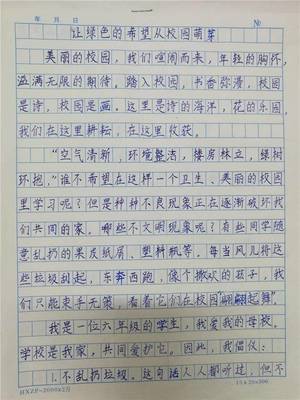 年 月 日 №
让绿色的希望从校园萌芽
美丽的校园，我们喧闹而来，年轻的胸怀，
溢满无限的期待。踏入校园，书香弥漫，校园
是诗，校园是画。这里是诗的海洋，花的乐园，
我们在这里耕耘，在这里收获。
“空气清新，环境整洁，楼房林立，绿树
环抱。”谁不希望在这样一个卫生、美丽的校园
里学习呢？但是种种不良现象正在逐渐破坏我
们共同的家。哪些不文明现象呢？有些同学随
意乱扔的果皮纸屑、塑料瓶等。每当风儿将这
些垃圾刮起，东奔西跑，像个撒欢的孩子，我
们只能束手无策，看着它们在校园“翩翩起舞”。
我是一位六年级的学生，我爱我的母校。
学校是我家，共同爱护它。因此，我倡仪：
1.不乱扔垃圾。这句话人人都听过，但不
15×20=300